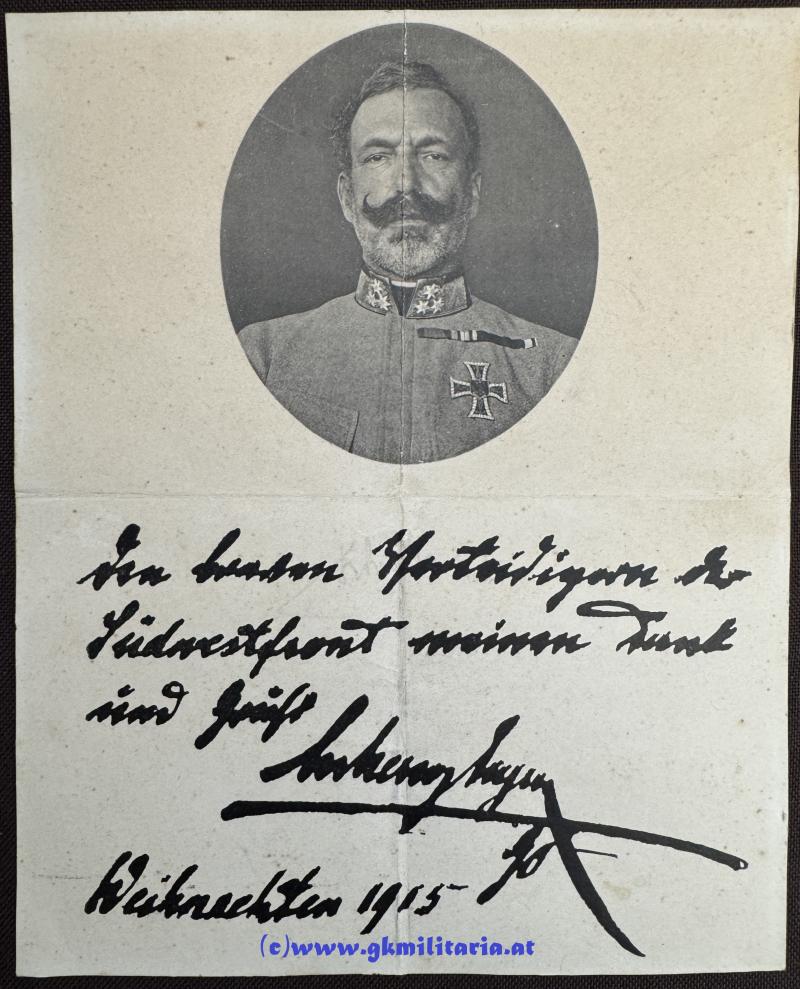 Den braven Verteidigern der
Südwestfront meinen Dank
und Gruß
Erzherzog Eugen
Weihnachten 1915
(c)www.gkmilitaria.at